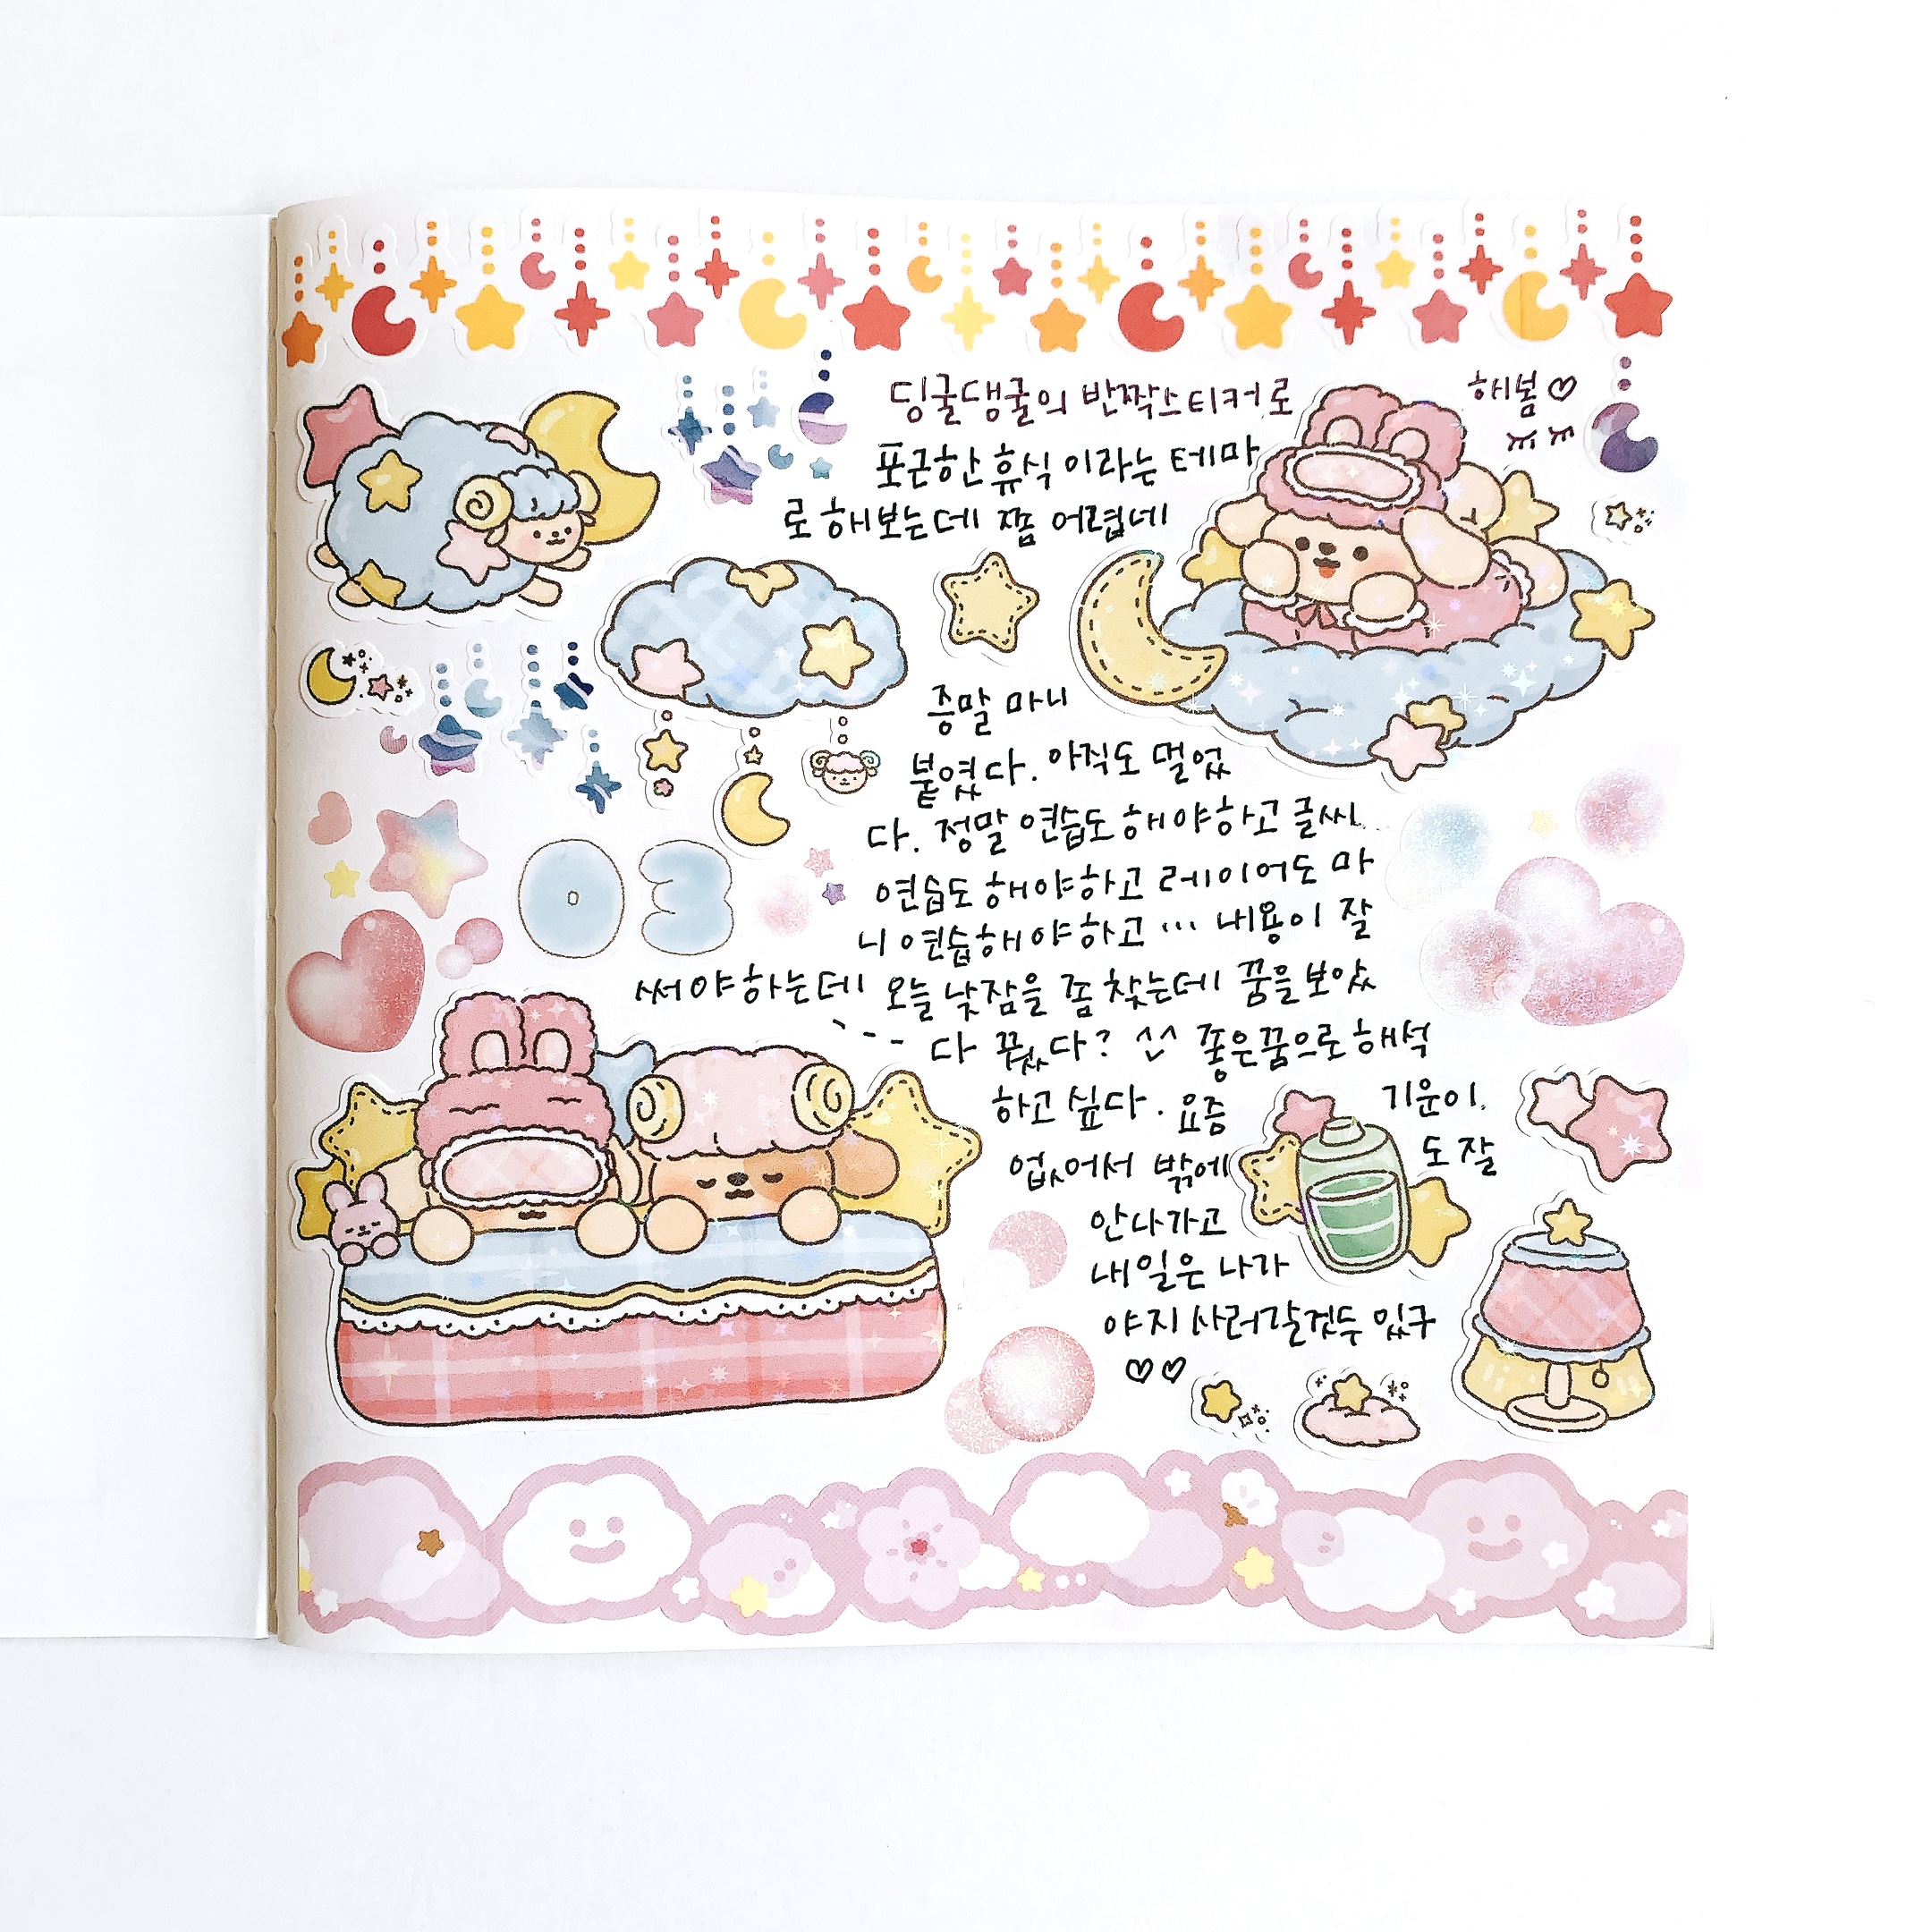 딩굴댕굴의 반짝스티커로 해봄♡
포근한 휴식 이라는 테마
로 해보는데 쫌 어렵네
증말 마니
붙였다. 아직도 멀었
다. 정말 연습도 해야하고 글씨
연습도 해야하고 레이어도 마
니 연습해야하고 ... 내용이 잘
03
써야하는데 오늘 낮잠을 좀 잤는데 꿈을 보았
다 꿨다? ^^ 좋은꿈으로 해석
하고 싶다. 요즘 기운이
없어서 밖에도 잘
안나가고
내일은 나가
야지 사러갈것두 있구
♡♡